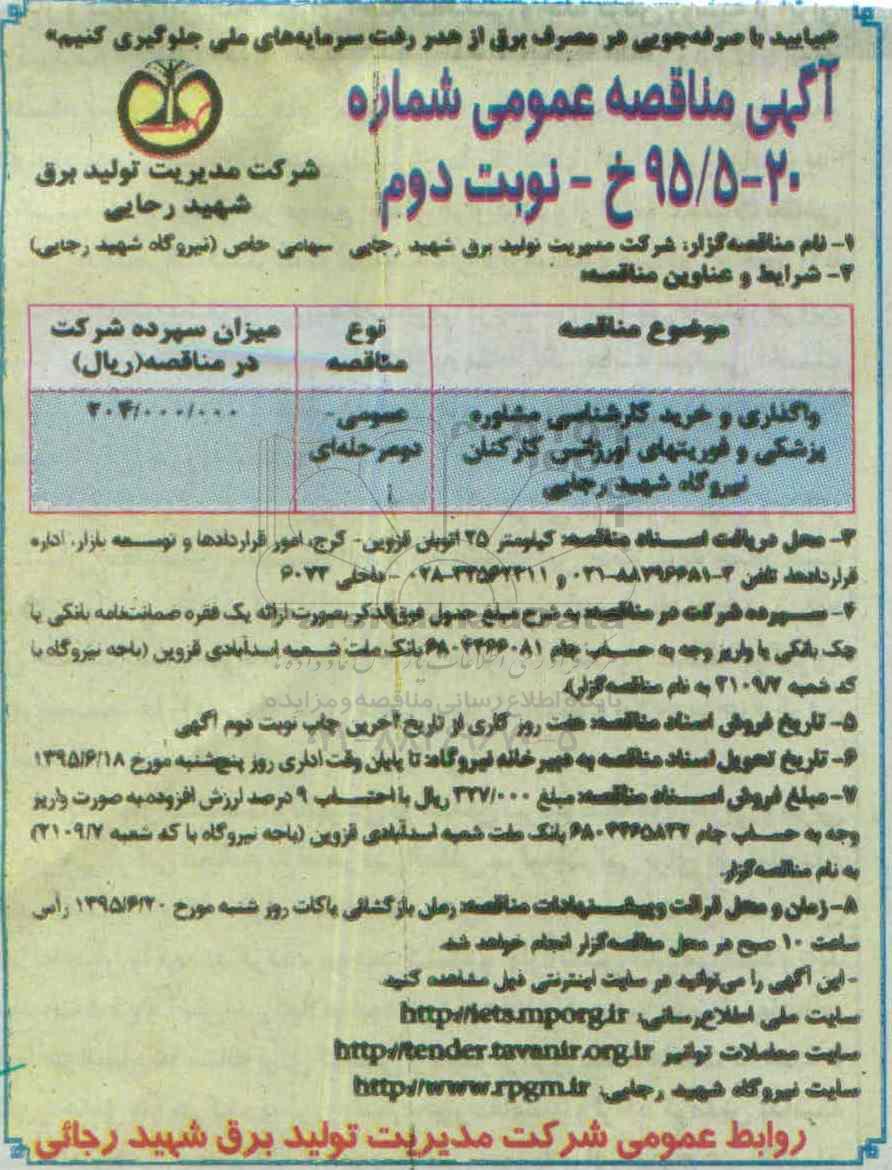 «بیایید با صرفه‌جویی در مصرف برق از هدر رفت سرمایه‌های ملی جلوگیری کنیم»
آگهی مناقصه عمومی شماره
۲۰-۹۵/۵خ - نوبت دوم
شرکت مدیریت تولید برق
شهید رجایی
۱- نام مناقصه‌گزار: شرکت مدیریت تولید برق شهید رجایی سهامی خاص (نیروگاه شهید رجایی)
۲- شرایط و عناوین مناقصه:
موضوع مناقصه
نوع مناقصه
میزان سپرده شرکت
در مناقصه(ریال)
واگذاری و خرید کارشناسی مشاوره
پزشکی و فوریتهای اورژانس کارکنان
نیروگاه شهید رجایی
عمومی-
دومرحله‌ای
۲۰۴/۰۰۰/۰۰۰
۳- محل دریافت اسناد مناقصه: کیلومتر ۲۵ اتوبان قزوین- کرج، امور قراردادها و توسعه بازار، اداره
قراردادها، تلفن ۳-۸۸۷۹۶۶۸۱-۰۲۱ و -۰۲۸ - داخلی ۶۰۷۳
۴- سپرده شرکت در مناقصه: به شرح مبلغ جدول فوق‌الذکر بصورت ارائه یک فقره ضمانتنامه بانکی یا
چک بانکی یا واریز وجه به حساب جام بانک ملت شعبه اسدآبادی قزوین (باجه نیروگاه با
کد شعبه ۲۱۰۹/۷ به نام مناقصه‌گزار).
۵- تاریخ فروش اسناد مناقصه: هفت روز کاری از تاریخ آخرین چاپ نوبت دوم آگهی
۶- تاریخ تحویل اسناد مناقصه به دبیرخانه نیروگاه: تا پایان وقت اداری روز پنج‌شنبه مورخ ۱۳۹۵/۶/۱۸
۷- مبلغ فروش اسناد مناقصه: مبلغ ۳۲۷/۰۰۰ ریال با احتساب ۹ درصد ارزش افزوده به صورت واریز
وجه به حساب جام بانک ملت شعبه اسدآبادی قزوین (باجه نیروگاه با کد شعبه ۲۱۰۹/۷)
به نام مناقصه‌گزار.
۸- زمان و محل قرائت پیشنهادات مناقصه: زمان بازگشائی پاکات روز شنبه مورخ ۱۳۹۵/۶/۲۰ رأس
ساعت ۱۰ صبح در محل مناقصه‌گزار انجام خواهد شد.
- این آگهی را می‌توانید در سایت اینترنتی ذیل مشاهده کنید.
سایت ملی اطلاع‌رسانی: http://iets.mporg.ir
سایت معاملات توانیر http://tender.tavanir.org.ir
سایت نیروگاه شهید رجایی: http://www.rpgm.ir
روابط عمومی شرکت مدیریت تولید برق شهید رجائی
پایگاه اطلاع رسانی مناقصه و مزایده